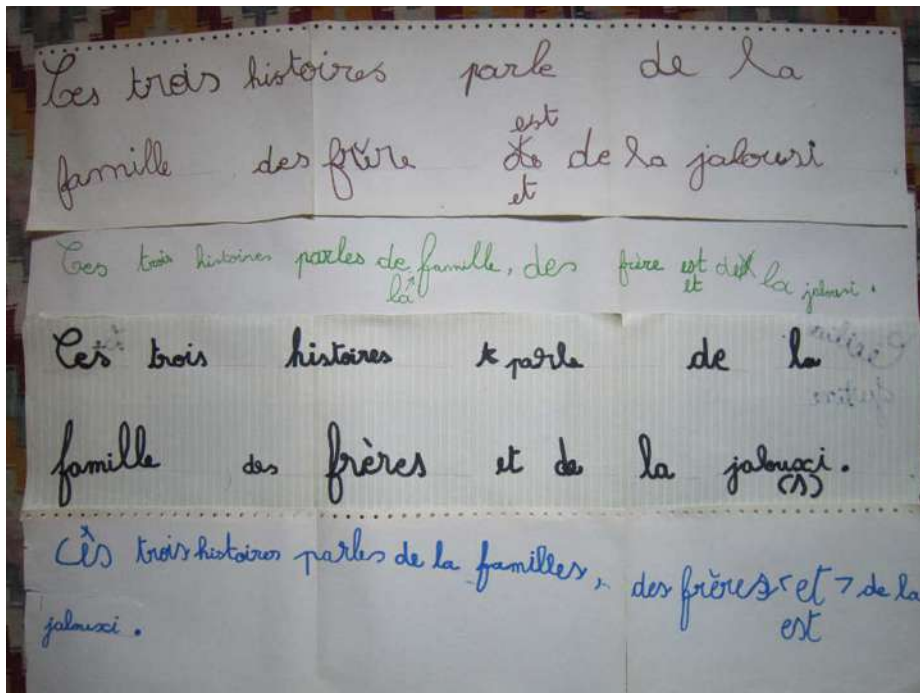 Ces trois histoires parle de la
est
famille des frère de la jalousi
et
Ces trois histoires parles de famille, des frère est de la jalousi.
la et
Ces trois histoires parle de la
famille des frères et de la jalouxi.
(s)
Cès trois histoires parles de la familles, des frères <et> de la
est
jalouxi.